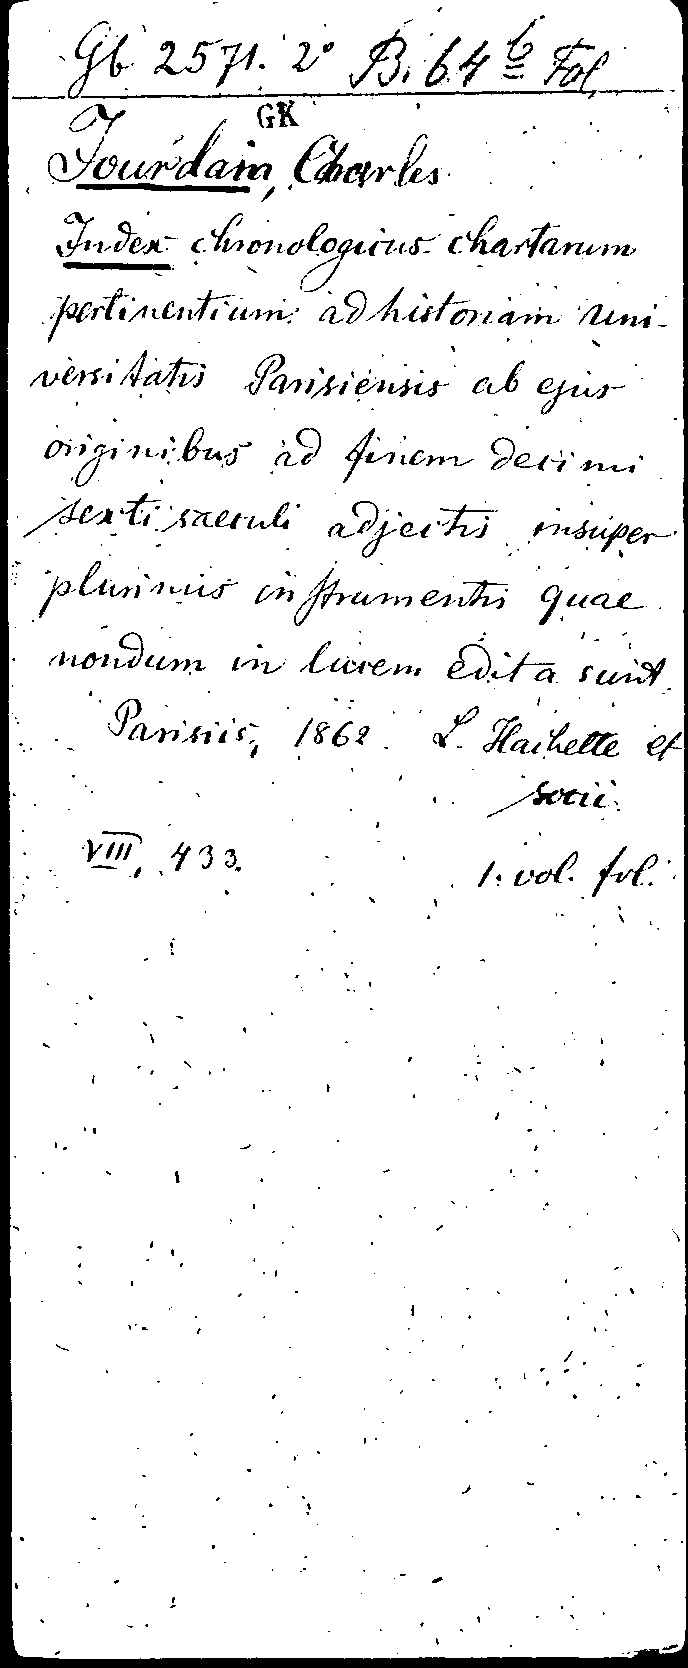 Gb 2571. 2° B. 64 b Fol.
GK
Jourdain, Charles
Index chronologicus chartarum
pertinentium ad historiam uni-
versitatis Parisiensis ab ejus
originibus ad finem decimi
sexti saeculi adjectis insuper
plurimis instrumentis quae
nondum in lucem edita sunt.
Parisiis, 1862. L. Hachette et
socii.
VIII, 433. 1. vol. fol.